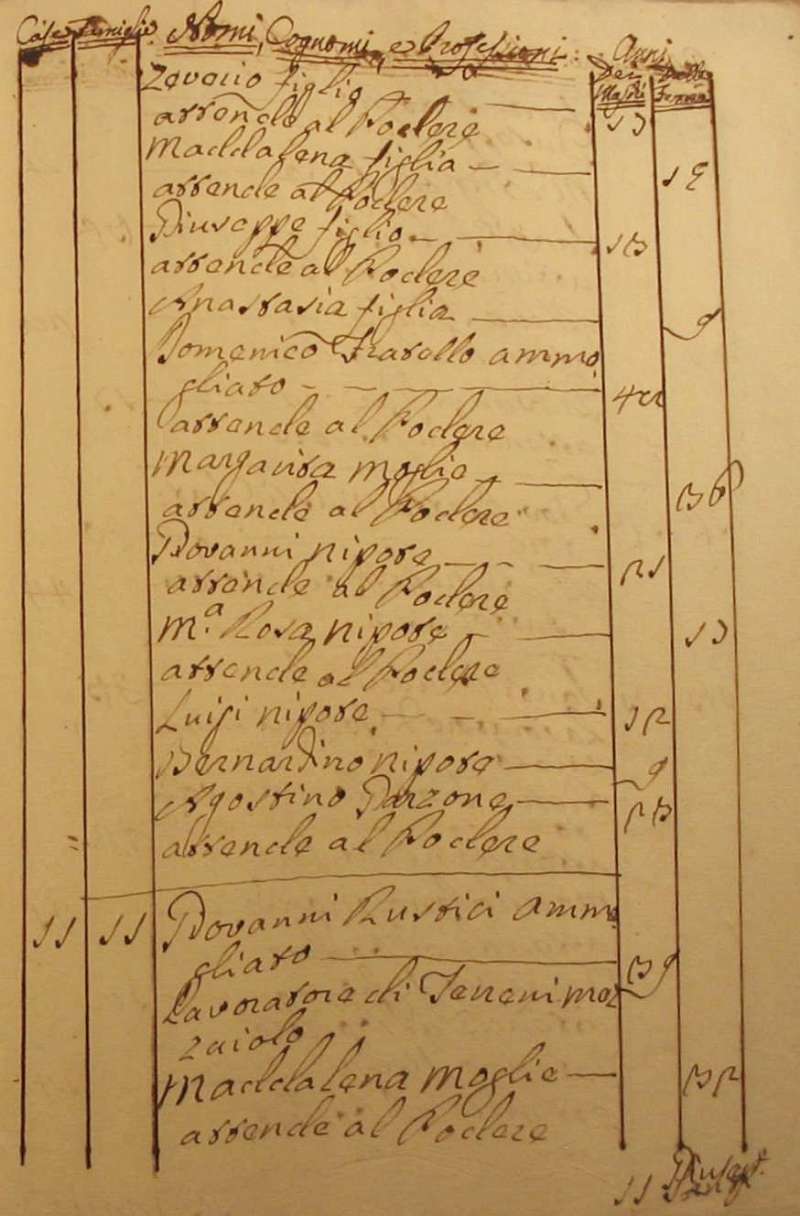 Case Famiglie Nomi, Cognomi, e Professioni Anni
Dei Maschi Delle Femine
figlio
attende al Podere 17
Maddalena figlia
attende al Podere 19
Giuseppe figlio
attende al Podere 13
Anastasia figlia 9
Domenico Fratello ammo
gliato
attende al Podere
Margarita moglie 36
attende al Podere
Giovanni nipote 21
attende al Podere
M.a Rosa nipote 17
attende al Podere
Luigi nipote 12
Bernardino nipote 9
Agostino Garzone 23
attende al Podere
11 11 Giovanni Rustici ammo
gliato 39
Lavoratore di Terreni mez
zaiolo
Maddalena moglie 32
attende al Podere
11